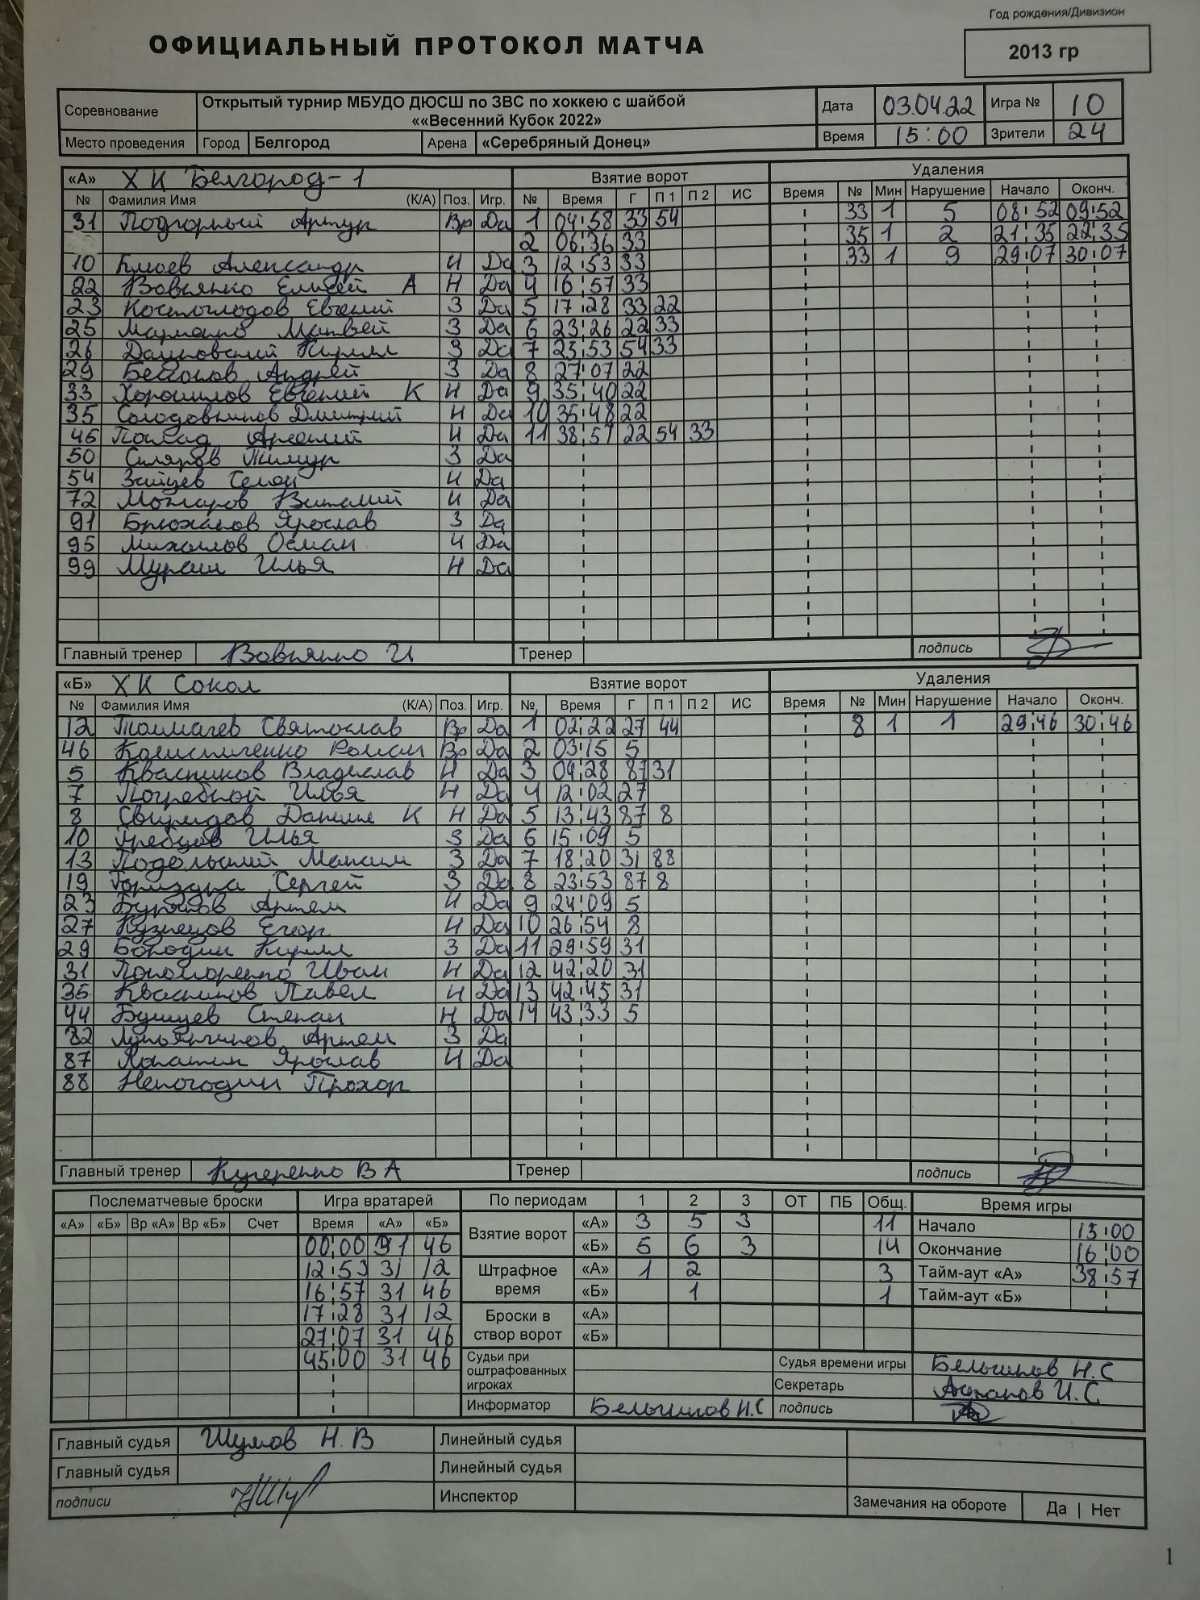 Год рождения/Дивизион
ОФИЦИАЛЬНЫЙ ПРОТОКОЛ МАТЧА
2013 гр
Соревнование Открытый турнир МБУДО ДЮСШ по ЗВС по хоккею с шайбой Дата 03.04.22 Игра № 10
««Весенний Кубок 2022»
Место проведения Город Белгород Арена «Серебряный Донец» Время 15:00 Зрители 24
«А» ХК Белгород-1 Взятие ворот Удаления
№ Фамилия Имя (К/А) Поз. Игр. № Время Г П 1 П 2 ИС Время № Мин Нарушение Начало Оконч.
31 Подгорный Артур Вр Да 1 04:58 33 54 33 1 5 08:52 09:52
2 06:36 33 35 1 2 21:35 22:35
10 Александр Н Да 3 12:53 33 33 1 9 29:07 30:07
22 Вовненко Елисей А Н Да 4 16:57 33
23 Костоглодов Евгений З Да 5 17:28 33 22
25 Матвей З Да 6 23:26 22 33
26 Кирилл З Да 7 23:53 54 33
29 Андрей З Да 8 27:07 22
33 Хорошилов Евгений К Н Да 9 35:40 22
35 Солодовников Дмитрий Н Да 10 35:48 22
46 Арсений Н Да 11 38:57 22 54 33
50 Скляров Тимур З Да
54 Зайцев Семен Н Да
72 Можаров Виталий Н Да
91 Брюханов Ярослав З Да
95 Михайлов Н Да
99 Мураш Илья Н Да
Главный тренер Вовненко И Тренер подпись
«Б» ХК Сокол Взятие ворот Удаления
№ Фамилия Имя (К/А) Поз. Игр. № Время Г П 1 П 2 ИС Время № Мин Нарушение Начало Оконч.
12 Толмачев Святослав Вр Да 1 02:22 27 44 8 1 1 29:46 30:46
46 Колистиченко Роман Вр Да 2 03:15 5
5 Квасников Владислав Н Да 3 04:28 87 31
7 Погребной Илья Н Да 4 12:02 27
8 Свиридов Даниил К Н Да 5 13:43 87 8
10 Гребцов Илья З Да 6 15:09 5
13 Подольский Максим З Да 7 18:20 31 88
19 Сергей З Да 8 23:53 87 8
23 Артем Н Да 9 24:09 5
27 Кузнецов Егор Н Да 10 26:54 8
29 Бородин Кирилл З Да 11 29:59 31
31 Пономаренко Иван Н Да 12 42:20 31
35 Квасников Павел Н Да 13 42:45 31
44 Бушуев Степан Н Да 14 43:33 5
82 Артем З Да
87 Лопатин Ярослав Н Да
88 Непогодин Прохор
Главный тренер Кучеренко В А Тренер подпись
Послематчевые броски Игра вратарей По периодам 1 2 3 ОТ ПБ Общ. Время игры
«А» «Б» Вр «А» Вр «Б» Счет Время «А» «Б» Взятие ворот «А» 3 5 3 11 Начало 15:00
00:00 31 46 «Б» 5 6 3 14 Окончание 16:00
12:53 31 12 Штрафное время «А» 1 2 3 Тайм-аут «А» 38:57
16:57 31 46 «Б» 1 1 Тайм-аут «Б»
17:28 31 12 Броски в створ ворот «А»
27:07 31 46 «Б»
45:00 31 46 Судьи при оштрафованных игроках Судья времени игры Н.С
Секретарь И.С.
Информатор Н.С подпись
Главный судья Шумов Н.В Линейный судья
Главный судья Линейный судья
подписи Инспектор Замечания на обороте Да | Нет
1